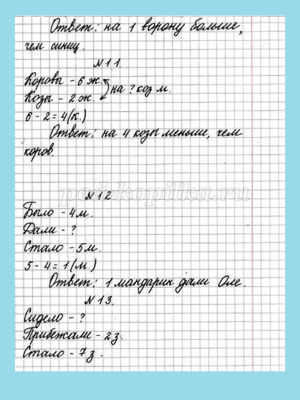 Ответ: на 1 ворону больше,
чем синиц.
№ 11.
Коровы – 6 ж.
Козы – 2 ж. на ? коз м.
6 - 2 = 4 (к.)
Ответ: на 4 козы меньше, чем
коров.
№ 12.
Было – 4 м.
Дали – ?
Стало – 5 м.
5 - 4 = 1 (м.)
Ответ: 1 мандарин дали Оле.
№ 13.
Сидело – ?
Прибежали – 2 з.
Стало – 7 з.